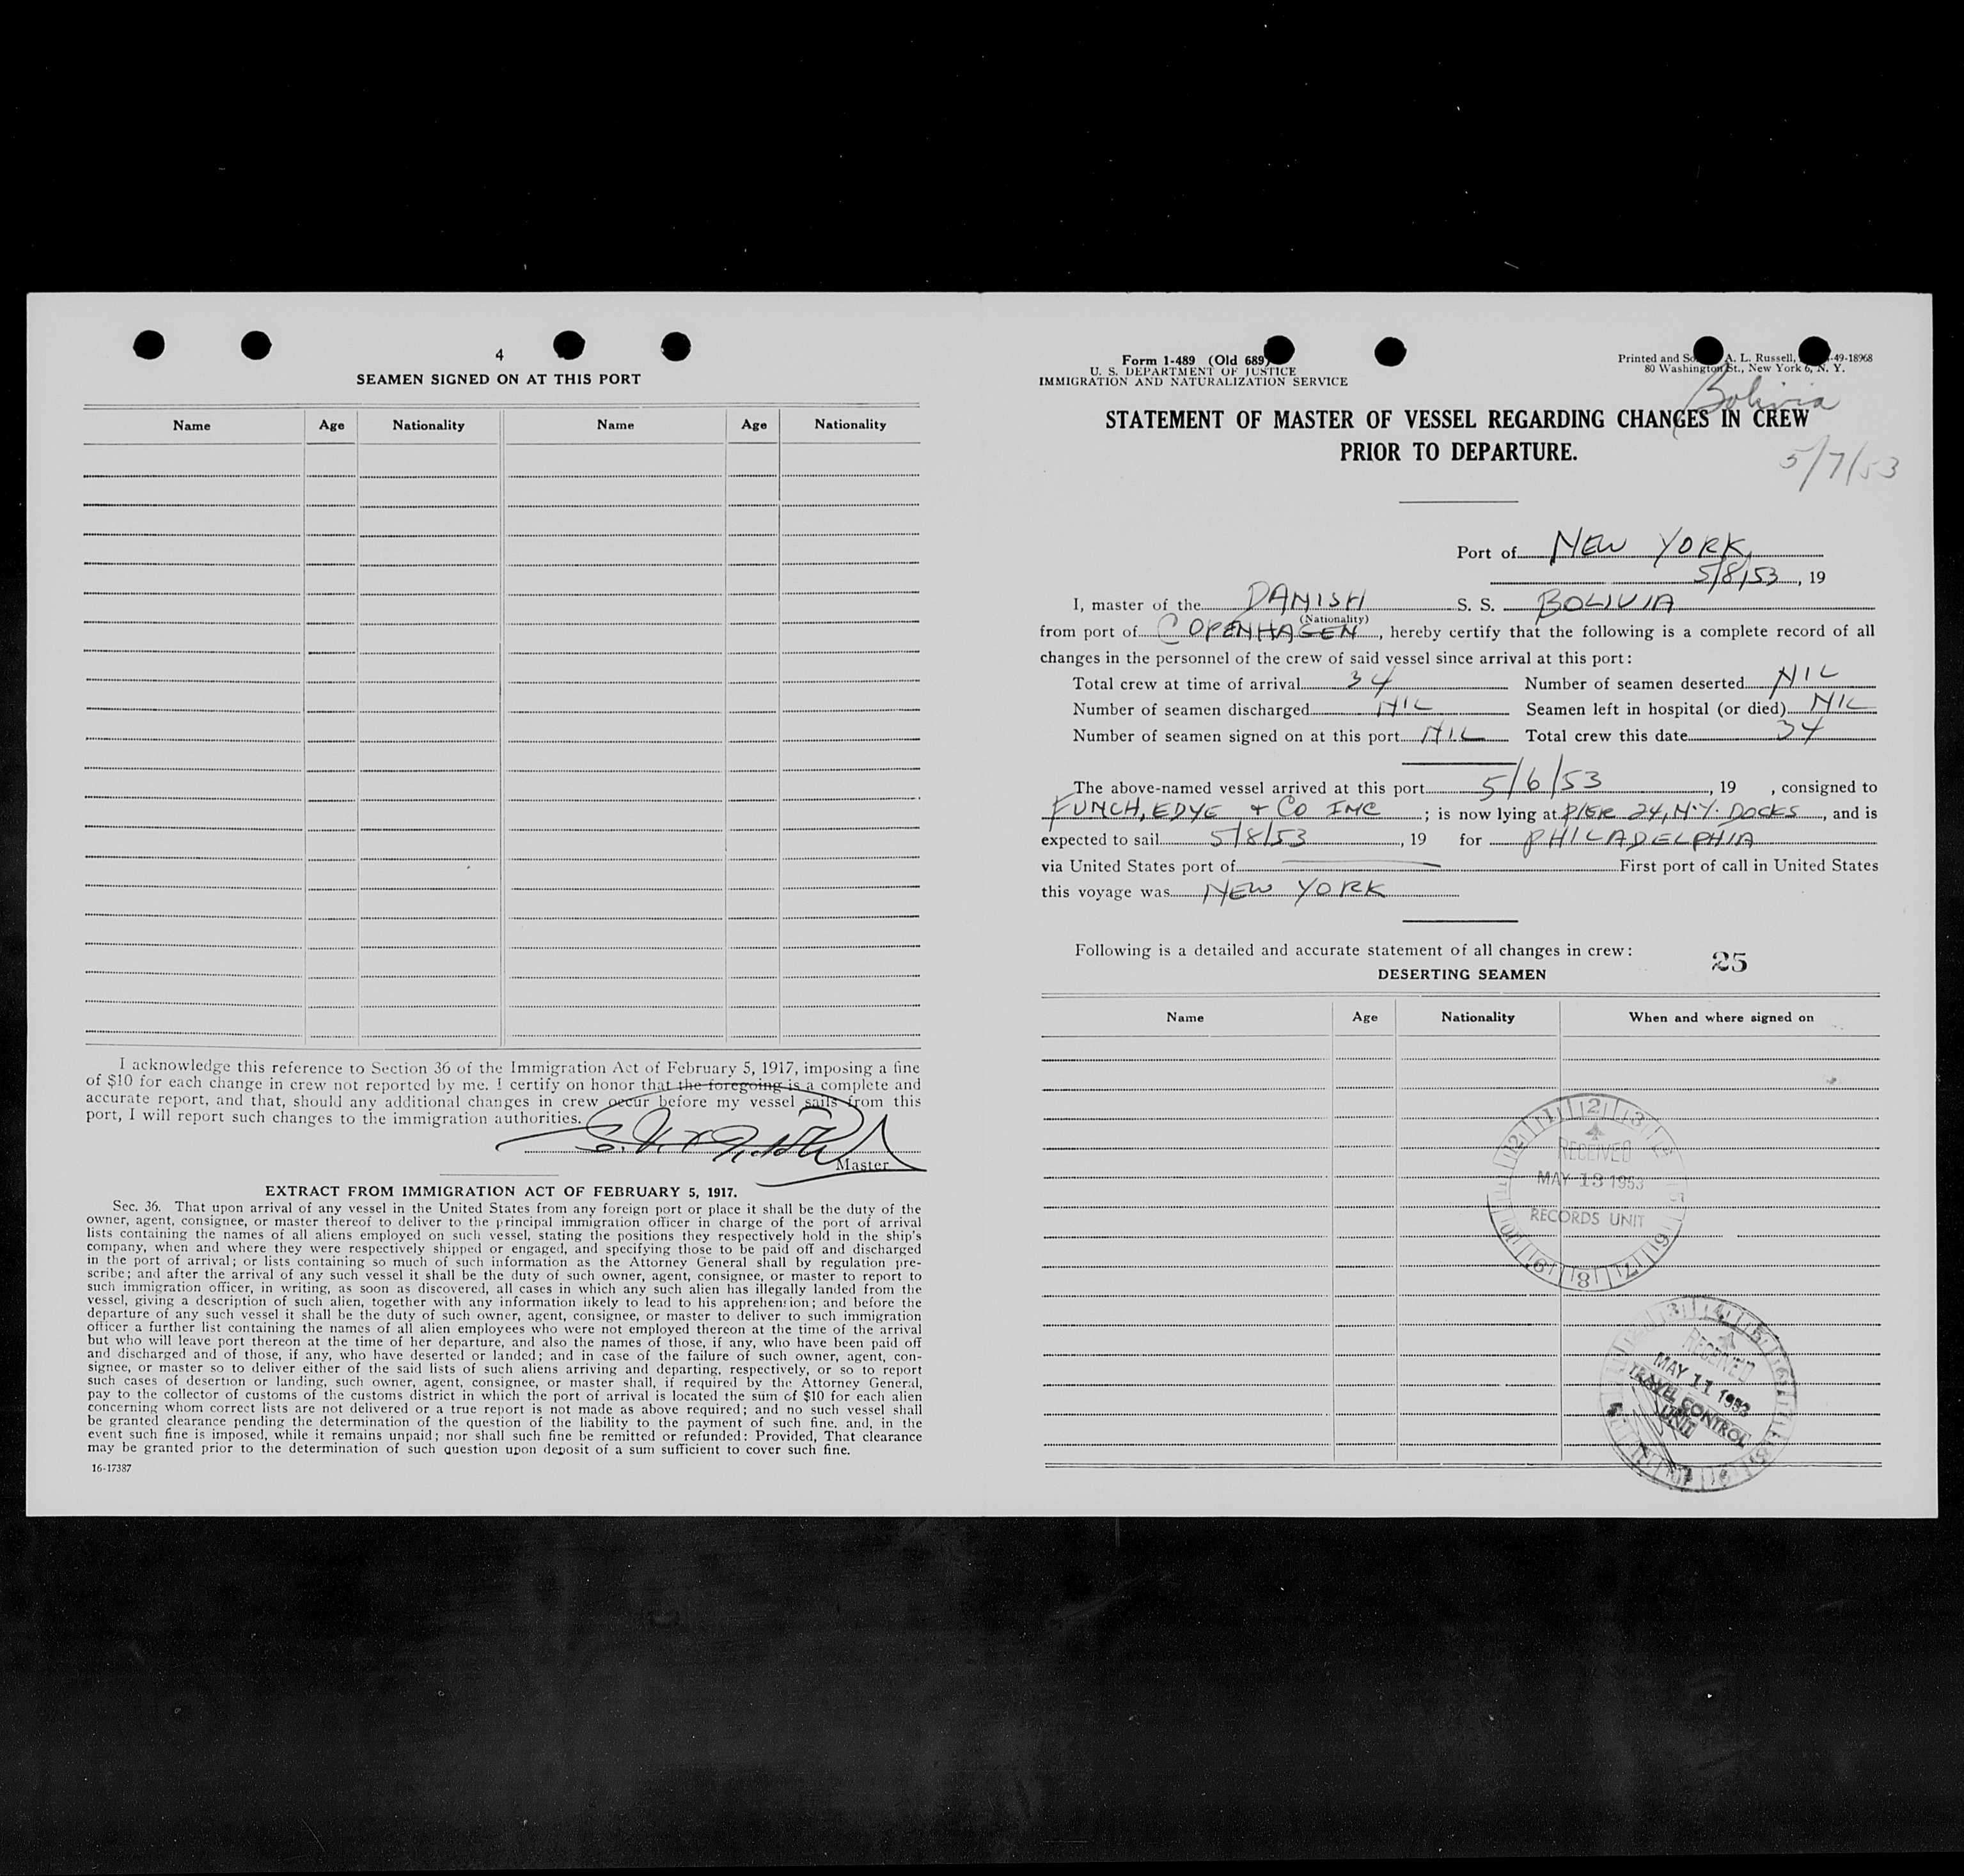 4
SEAMEN SIGNED ON AT THIS PORT
Name Age Nationality Name Age Nationality
I acknowledge this reference to Section 36 of the Immigration Act of February 5, 1917, imposing a fine
of $10 for each change in crew not reported by me. I certify on honor that the foregoing is a complete and
accurate report, and that, should any additional changes in crew occur before my vessel sails from this
port, I will report such changes to the immigration authorities.
Master
EXTRACT FROM IMMIGRATION ACT OF FEBRUARY 5, 1917.
Sec. 36. That upon arrival of any vessel in the United States from any foreign port or place it shall be the duty of the
owner, agent, consignee, or master thereof to deliver to the principal immigration officer in charge of the port of arrival
lists containing the names of all aliens employed on such vessel, stating the positions they respectively hold in the ship's
company, when and where they were respectively shipped or engaged, and specifying those to be paid off and discharged
in the port of arrival; or lists containing so much of such information as the Attorney General shall by regulation pre-
scribe; and after the arrival of any such vessel it shall be the duty of such owner, agent, consignee, or master to report to
such immigration officer, in writing, as soon as discovered, all cases in which any such alien has illegally landed from the
vessel, giving a description of such alien, together with any information likely to lead to his apprehension; and before the
departure of any such vessel it shall be the duty of such owner, agent, consignee, or master to deliver to such immigration
officer a further list containing the names of all alien employees who were not employed thereon at the time of the arrival
but who will leave port thereon at the time of her departure, and also the names of those, if any, who have been paid off
and discharged and of those, if any, who have deserted or landed; and in case of the failure of such owner, agent, con-
signee, or master so to deliver either of the said lists of such aliens arriving and departing, respectively, or so to report
such cases of desertion or landing, such owner, agent, consignee, or master shall, if required by the Attorney General,
pay to the collector of customs of the customs district in which the port of arrival is located the sum of $10 for each alien
concerning whom correct lists are not delivered or a true report is not made as above required; and no such vessel shall
be granted clearance pending the determination of the question of the liability to the payment of such fine, and, in the
event such fine is imposed, while it remains unpaid; nor shall such fine be remitted or refunded: Provided, That clearance
may be granted prior to the determination of such question upon deposit of a sum sufficient to cover such fine.
16-17387
Form 1-489 (Old 689)
U. S. DEPARTMENT OF JUSTICE
IMMIGRATION AND NATURALIZATION SERVICE
Printed and So A. L. Russell, -49-18968
80 Washington St., New York 6, N. Y.
Bolivia
STATEMENT OF MASTER OF VESSEL REGARDING CHANGES IN CREW
PRIOR TO DEPARTURE.
5/7/53
Port of NEW YORK,
5/8/53, 19
I, master of the DANISH S. S. BOLIVIA
(Nationality)
from port of COPENHAGEN, hereby certify that the following is a complete record of all
changes in the personnel of the crew of said vessel since arrival at this port:
Total crew at time of arrival 34 Number of seamen deserted NIL
Number of seamen discharged NIL Seamen left in hospital (or died) NIL
Number of seamen signed on at this port NIL Total crew this date 34
The above-named vessel arrived at this port 5/6/53, 19 , consigned to
FUNCH, EDYE & CO INC; is now lying at PIER 24, N.Y. DOCKS, and is
expected to sail 5/8/53, 19 for PHILADELPHIA
via United States port of First port of call in United States
this voyage was NEW YORK
Following is a detailed and accurate statement of all changes in crew:
25
DESERTING SEAMEN
Name Age Nationality When and where signed on
RECEIVED
MAY 13 1953
RECORDS UNIT
RECEIVED
MAY 11 1953
TRAVEL CONTROL
UNIT